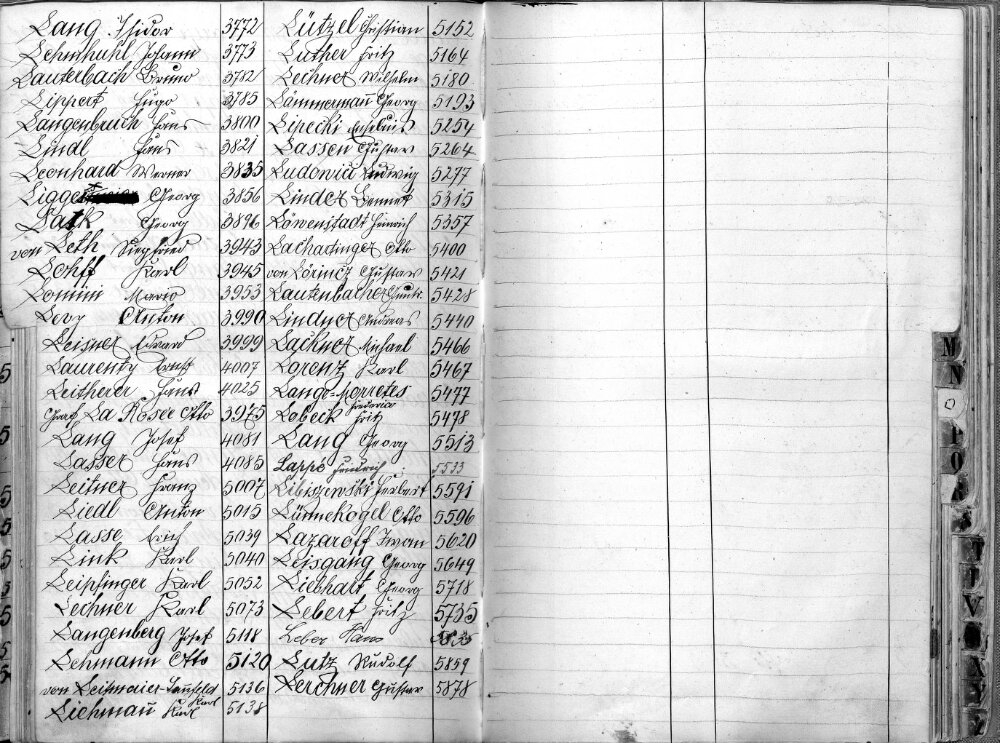 Lang Isidor 3772
Lehmkuhl Johann 3773
Lauterbach Bruno
Lippert Hugo 3785
Langenbruch Hans 3800
Lindl Hans 3821
Leonhard Werner 3835
Georg 3856
Georg 3896
von Leth Siegfried 3943
Lohff Karl 3945
Lomini Mario 3953
Levy Anton 3990
Leisner Edward 3999
Laurenty Ernst 4007
Leitherer Hans 4025
Graf La Rosee Otto 3975
Lang Josef 4081
Lasser Hans 4085
Leitner Franz 5007
Liedl Anton 5015
Lasse Erich 5039
Link Karl 5040
Leipfinger Karl 5052
Lechner Karl 5073
Langenberg Josef 5118
Lehmann Otto 5120
von 5136
Karl
Karl 5138
Lützel Christian 5152
Luther Fritz 5164
Lechner Wilhelm 5180
Lämmermañ Georg 5193
Lipecki 5254
Lassen Gustav 5264
Ludwig 5277
Linder Bennet 5315
Löwenstadt Heinrich 5357
Lachadinger Otto 5400
von Lörincz Gustav 5421
Lautenbacher 5428
Lindner Andreas 5440
Lachner Michael 5466
Lorenz Karl 5467
Lange-Morretes 5477
Frederico
Lobeck Fritz 5478
Lang Georg 5513
Lappe Friedrich 5533
Libiszewski Herbert 5591
Lünnekogel Otto 5596
Lazaroff Iwan 5620
Leisgang Georg 5649
Liebhart Georg 5718
Lebert Fritz 5735
Leber Hans
Lutz Rudolf 5859
Lerchner Gustav 5878
M
N
O
P